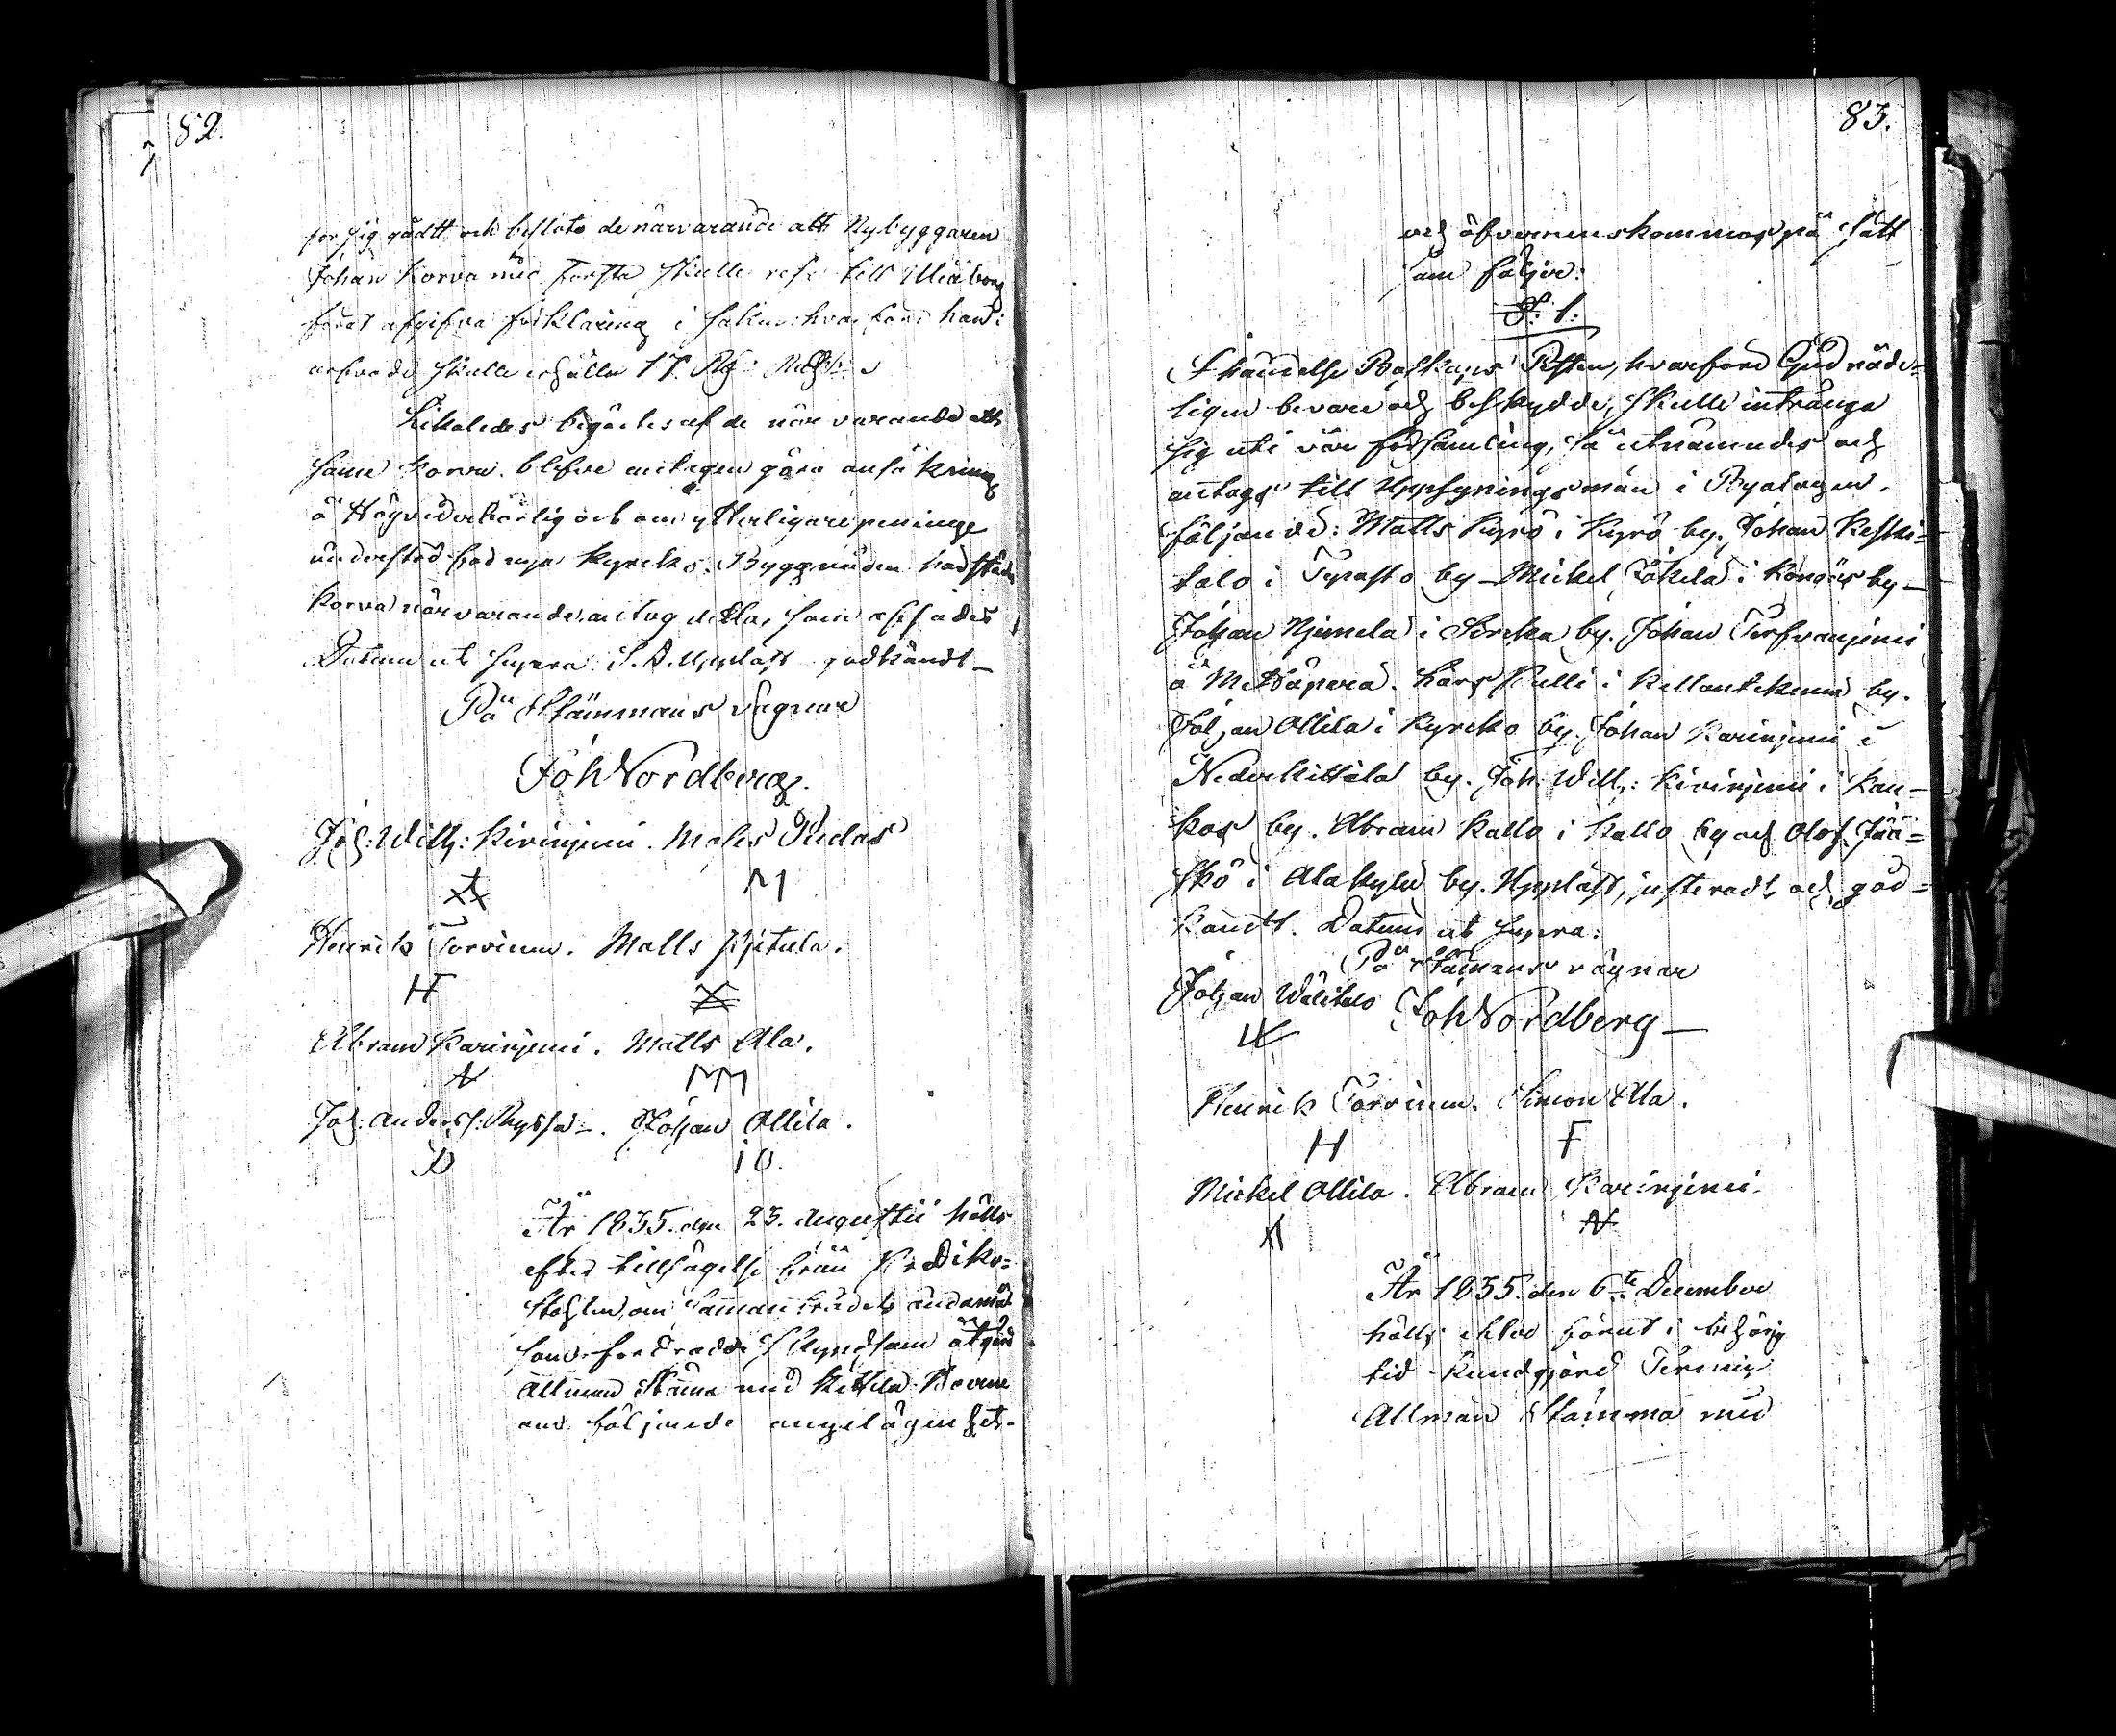 82.
för sig gådtt och beslöto de närvarande att Nybyggaren
Johan Korva med första skulle resa till Uleåborg
förat afgifva förklaring i saken hvarföre han i
arfvode skulle erhålla 17 R
Likaledes begärtes af de närvarande att
samme Korva blefve antagen göra ansökning
å Högvederbörlig ort om ytterligare peninge
understöd för nya Kyrcko Byggnaden
Korva närvarande antog detta, som
Datum ut supra. Uppläst godkändt _
På Stämmans Vägnar
Joh Nordberg.
Joh: Wilh: Kirinjemi. Mats Pudas
M
Henrik Torvinen. Matts
H
Abram Karinjemi. Matts Ala.
N MM
Joh: Anders: Ryssä. Johan Ollila.
IO.
År 1835. den 23. Augustii hölls
efter tillsägelse från Prediko-
Stohlen, om Sammanträdets ändamål
som fordrade skyndsam åtgärd
Allmän Stäma med Kittilä Boerne
om följande angelägenhet
83.
och öfverenskommos på sätt
som följer:
§. 1.
I händelse Boskaps Pesten, hvarföre Gud nåde-
ligen bevare och beskydde, skulle intränga
sig uti vår församling, så utnämndes och
antogs till Uppsyningsmän i Byalagen.
följande: Matts Kyrö i Kyrö by. Johan Keski-
talo i Tepasto by _ Mickel Jökelä i Köngäs by _
Johan Njemelä i Sircka by. Johan Terfvanjemi
å Mettäperä. Lars Pulli i Kellontekemä by.
Johan Ollila i Kyrcko by. Johan Karinjemi i
Neder Kittilä by. Joh: Wilh: Kirinjemi i Kau-
kos by. Abram Kallo i Kallo by och Olof Jää-
skö i Alakylä by. Uppläst, justeradt och god-
kändt. Datum ut supra:
På Stämans vägnar
Johan Wälitalo Joh Nordberg _
Henrik Torvinen. Simon Ala.
H F
Mickel Ollila. Abram Karinjemi.
N
År 1835. den 6te December
hölls efter förut i behörig
tid kundgjord Termin
Allmän Stämma med